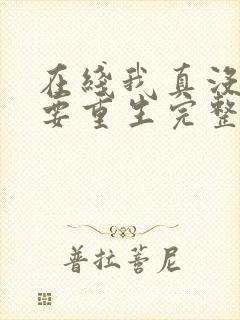 在綫我真没
要重生完整
普拉蒈尼